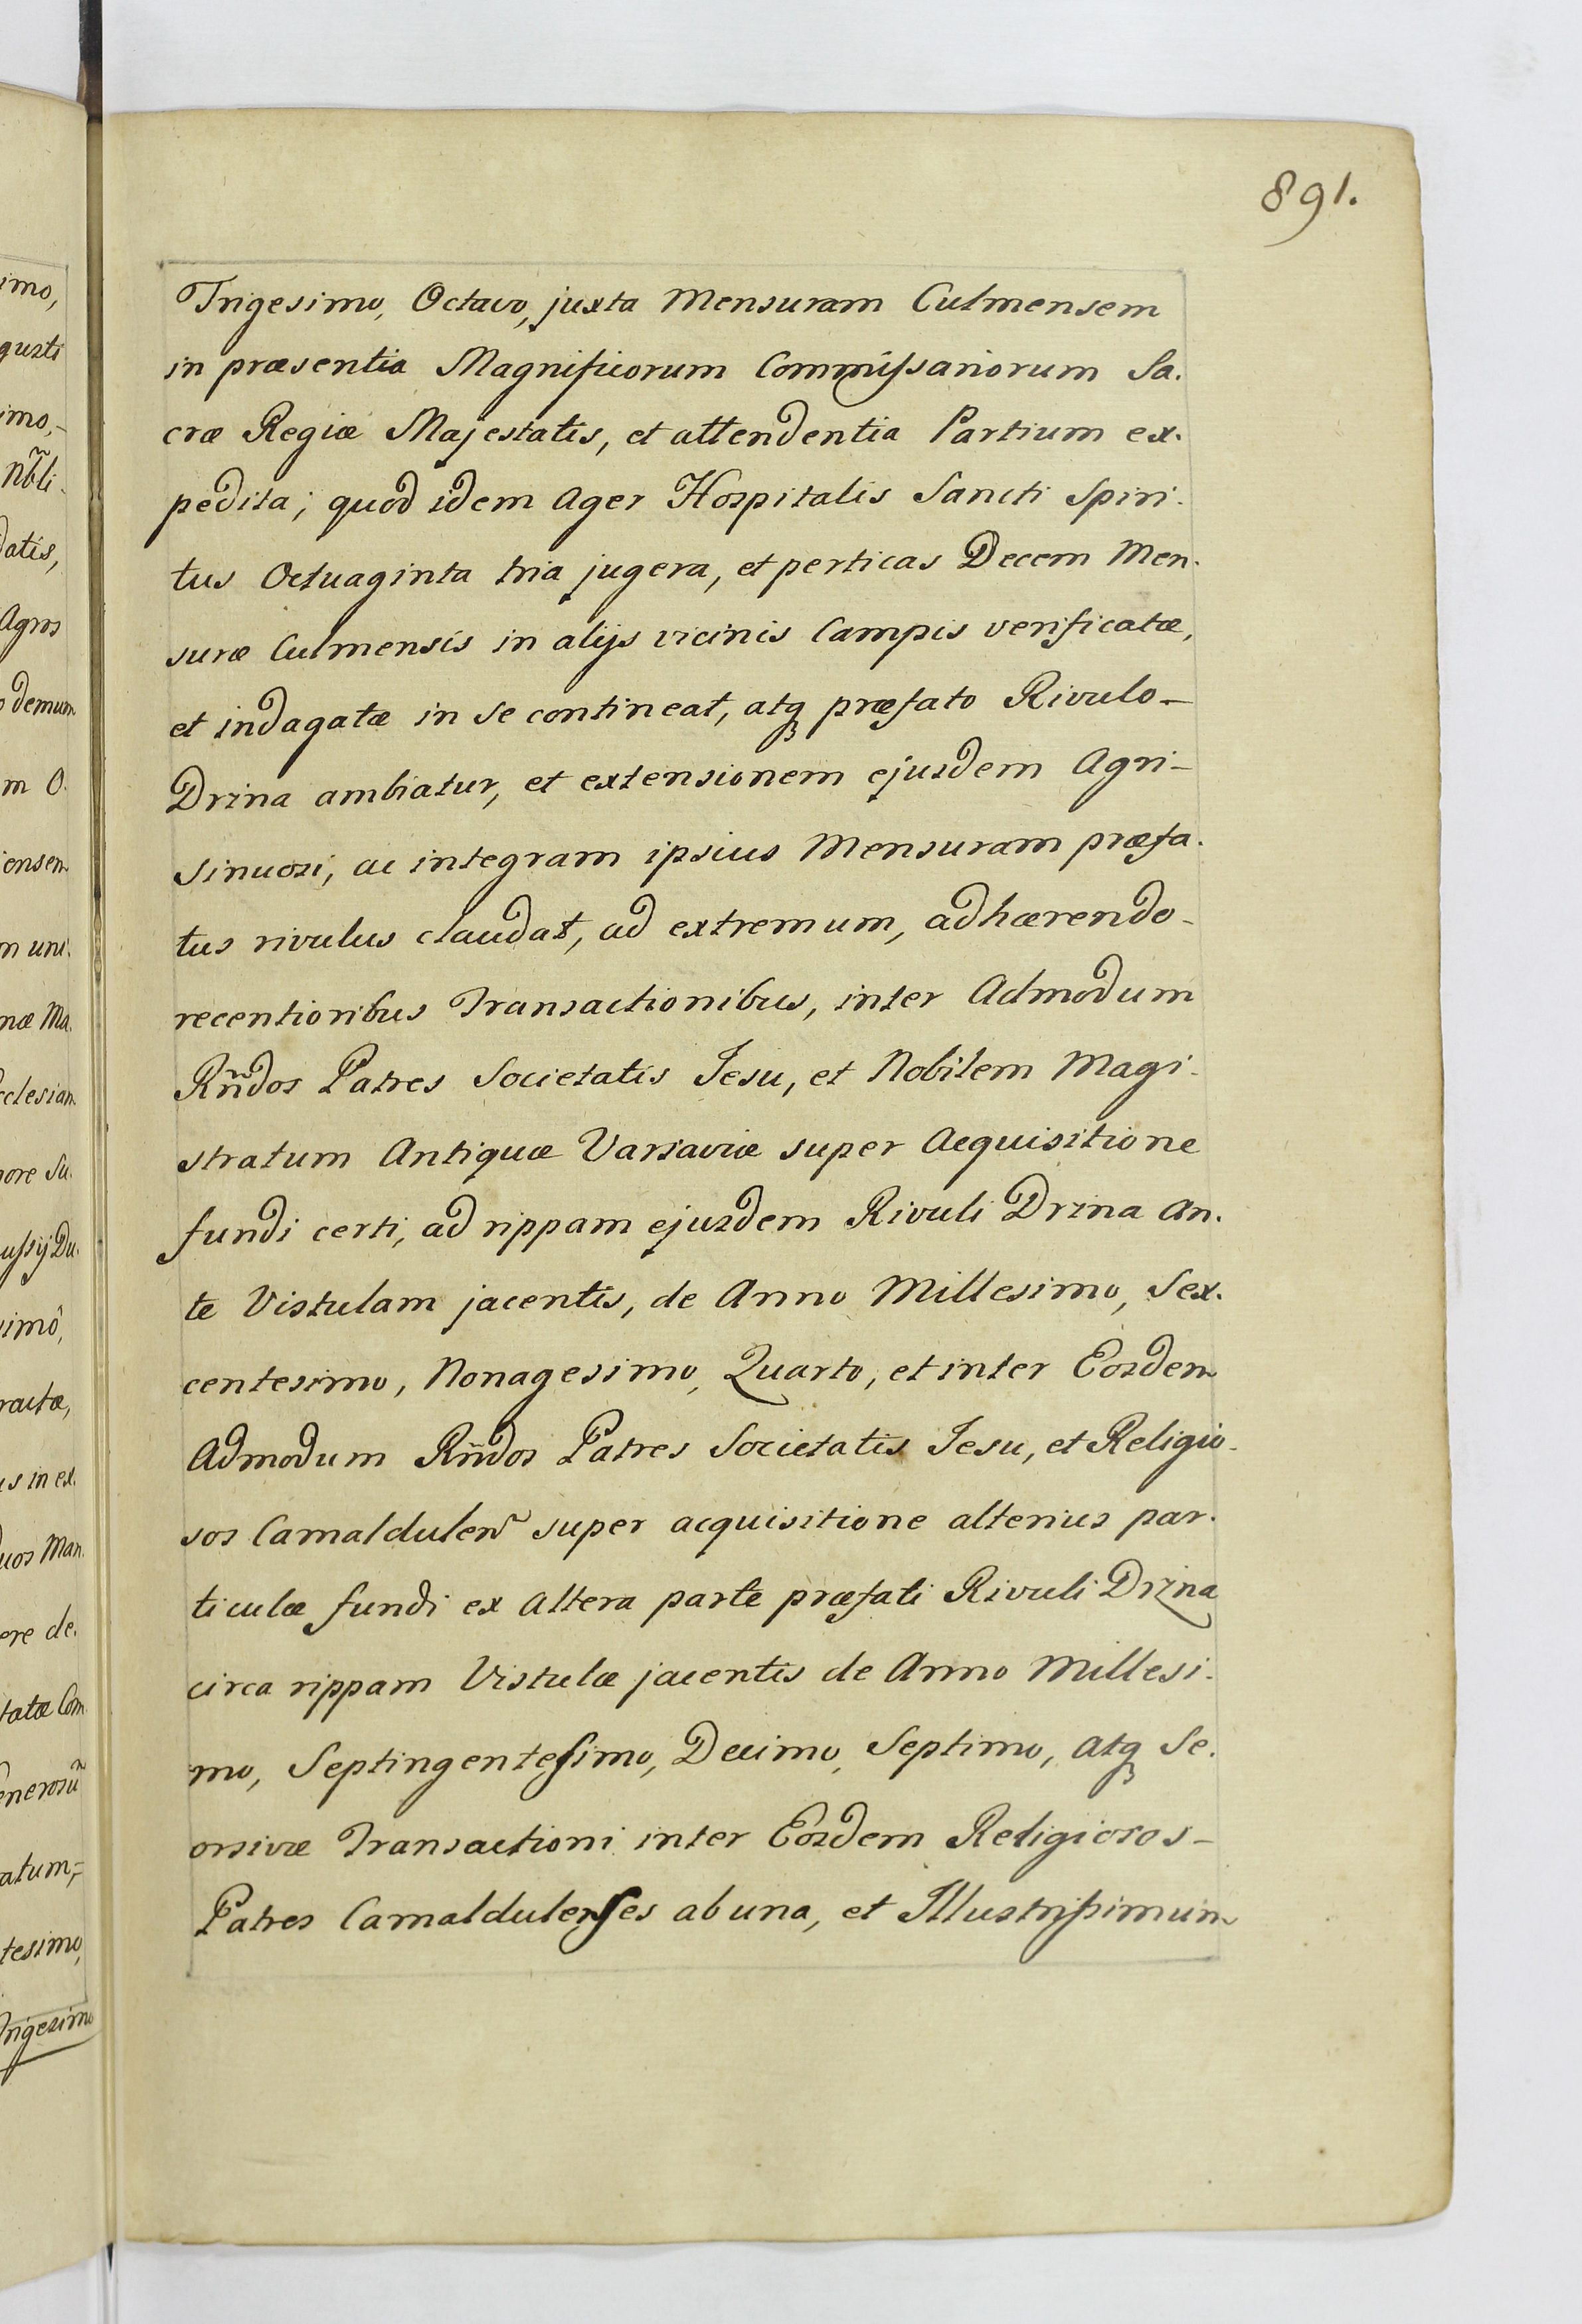 891.
Trigesimo, Octavo, juxta Mensuram Culmensem
in præsentia Magnificorum Commissariorum Sa.
cræ Regiæ Majestatis, et attendentia Partium ex.
pedita; quod idem Ager Hospitalis Sancti Spiri.
tus Octuaginta tria jugera, et perticas Decem Men.
suræ Culmensis in alijs vicinis Campis verificatæ,
et indagatæ in se contineat, atq præfato Rivulo-
Drzna ambiatur, et extensionem ejusdem Agri-
sinuosi, ac integram ipsius Mensuram præfa.
tus rivulus claudat, ad extremum, adhærendo-
recentioribus Transactionibus, inter Admodum
Rñdos Patres Societatis Jesu, et Nobilem Magi-
stratum Antiquæ Varsaviæ super Acquisitione
fundi certi, ad rippam ejusdem Rivuli Drzna an.
te Vistulam jacentis, de Anno Millesimo, Sex.
centesimo, Nonagesimo, Quarto, et inter Eosdem
Admodum Rñdos Patres Societatis Jesu, et Religio-
sos Camaldulen͂ super acquisitione alterius par.
ticulæ fundi ex altera parte præfati Rivuli Drzna
circa rippam Vistulæ jacentis de Anno Millesi.
mo, Septingentesimo, Decimo, Septimo, atq Se.
orsivæ Transactioni inter Eosdem Religiosos-
Patres Camaldulenses ab una, et Illustrissimum
imo,
gusti
imo,-
Nb̃li.
datis,
Agros
demum
m O.
iensem
m uni.
næ Ma.
cclesiam
ore Su.
ussij Du.
simô,
ractæ,
us in ex.
uos Man.
ere de.
tatæ Com
enerosũ
atum,=
tesimo,
Trigesimo